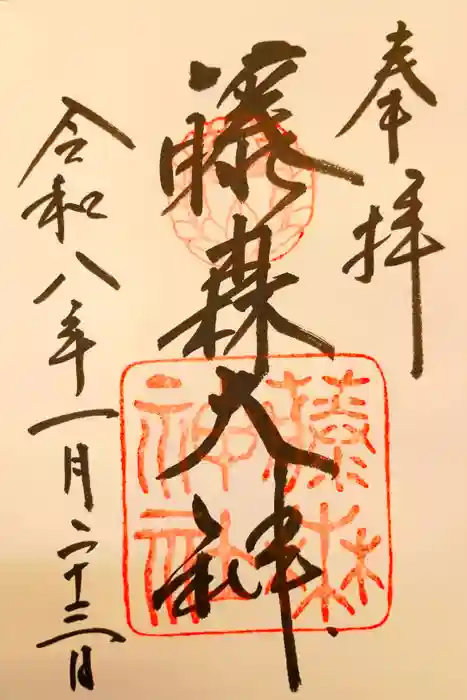 奉拝
藤森大神
藤森神社
令和八年一月二十三日